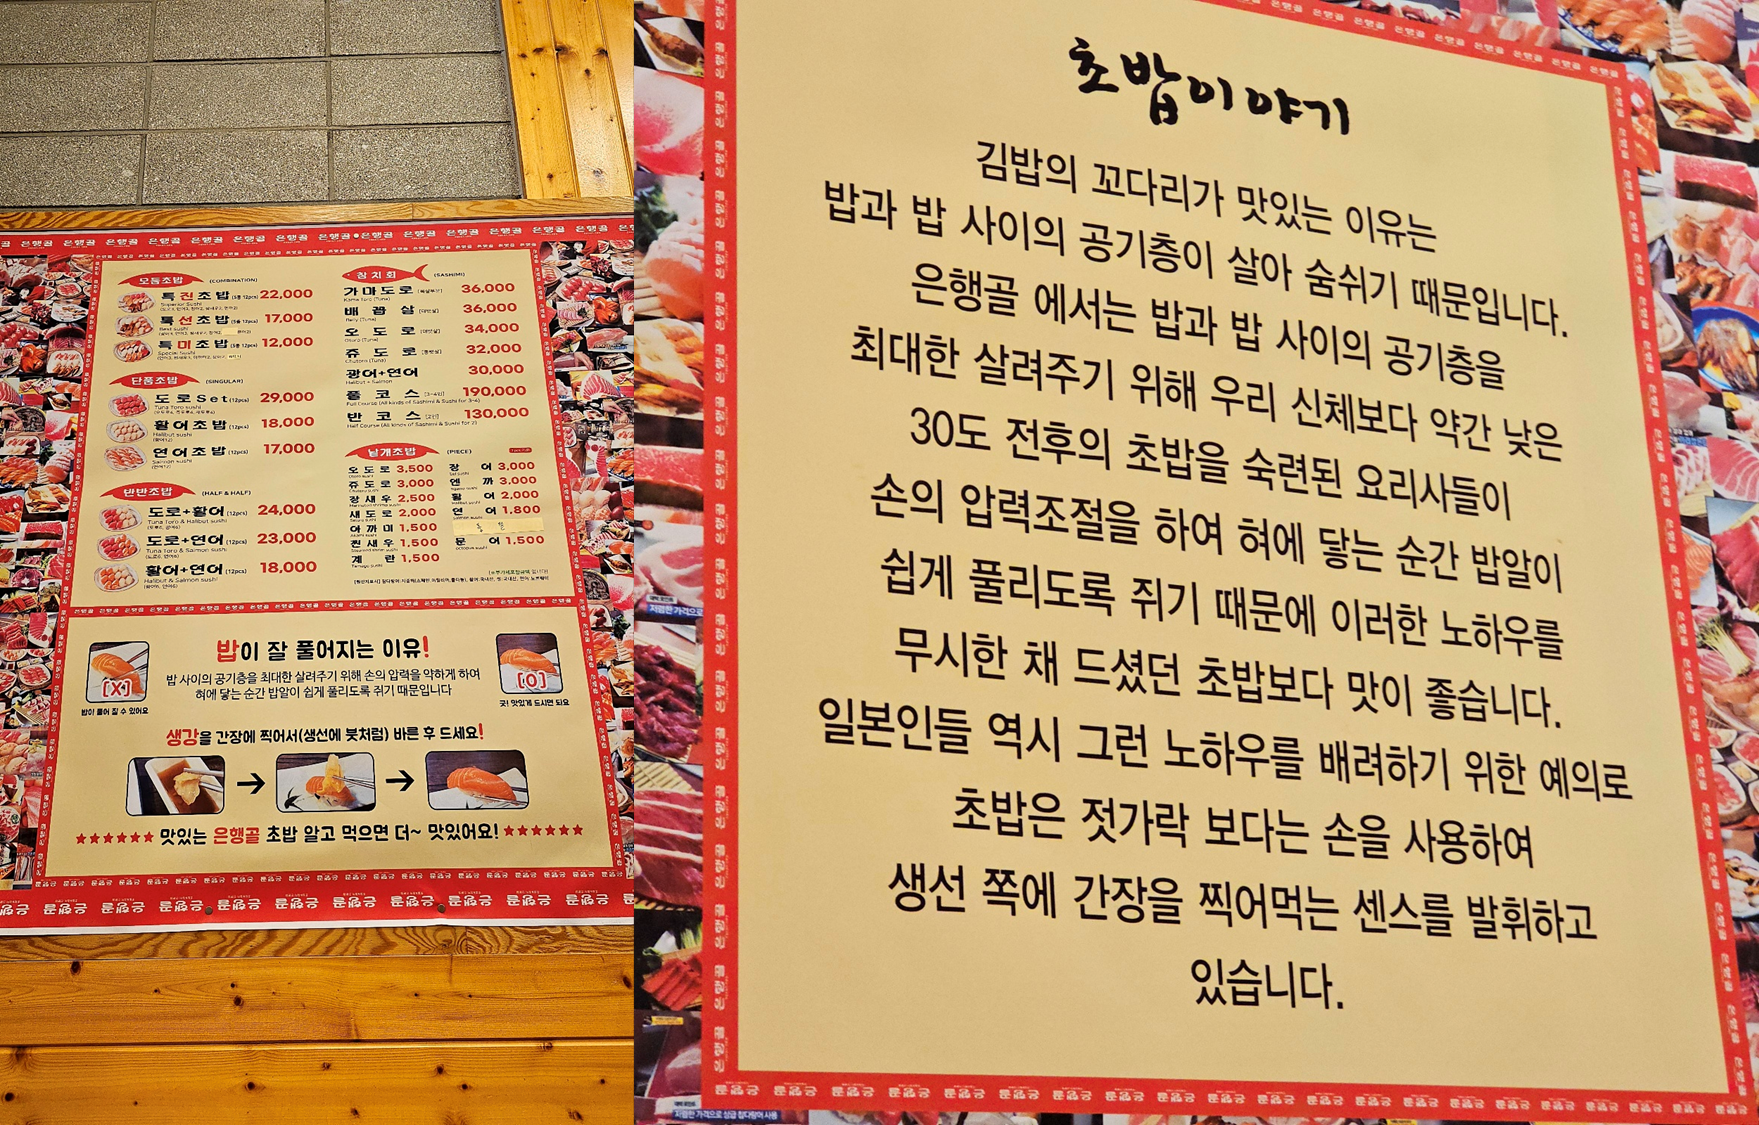 은행골 은행골 은행골 은행골 은행골 은행골 은행골 은행골 은행골 은행골 은행골 은행골 은행골
모둠초밥 (COMBINATION)
특진초밥 (12pcs) 22,000
Superior Sushi
특선초밥 (12pcs) 17,000
Best sushi
특미초밥 (12pcs) 12,000
Special Sushi
단품초밥 (SINGULAR)
도로Set (12pcs) 29,000
Tuna Toro sushi
활어초밥 (12pcs) 18,000
Halibut sushi
(광어12)
연어초밥 (12pcs) 17,000
Salmon sushi
(연어12)
반반초밥 (HALF & HALF)
도로+활어 (12pcs) 24,000
Tuna Toro & Halibut sushi
도로+연어 (12pcs) 23,000
Tuna Toro & Salmon sushi
활어+연어 (12pcs) 18,000
Halibut & Salmon sushi
참치회 (SASHIMI)
가마도로 36,000
Kama Toro (Tuna)
배꼽살 36,000
오도로 34,000
쥬도로 32,000
광어+연어 30,000
Halibut + Salmon
풀코스 190,000
Full Course (All kinds of Sashimi & Sushi for 3~4)
반코스 130,000
Half Course (All kinds of Sashimi & Sushi for 2)
낱개초밥 (PIECE)
오도로 3,500
쥬도로 3,000
장새우 2,500
새도로 2,000
아까미 1,500
찐새우 1,500
계란 1,500
장어 3,000
엔까 3,000
활어 2,000
연어 1,800
문어 1,500
밥이 잘 풀어지는 이유!
밥 사이의 공기층을 최대한 살려주기 위해 손의 압력을 약하게 하여
혀에 닿는 순간 밥알이 쉽게 풀리도록 쥐기 때문입니다
[X]
밥이 풀어 질 수 있어요
[O]
굿! 맛있게 드시면 되요
생강을 간장에 찍어서(생선에 붓처럼) 바른 후 드세요!
맛있는 은행골 초밥 알고 먹으면 더~ 맛있어요!
은행골 은행골 은행골 은행골 은행골 은행골 은행골 은행골 은행골
초밥이야기
김밥의 꼬다리가 맛있는 이유는
밥과 밥 사이의 공기층이 살아 숨쉬기 때문입니다.
은행골 에서는 밥과 밥 사이의 공기층을
최대한 살려주기 위해 우리 신체보다 약간 낮은
30도 전후의 초밥을 숙련된 요리사들이
손의 압력조절을 하여 혀에 닿는 순간 밥알이
쉽게 풀리도록 쥐기 때문에 이러한 노하우를
무시한 채 드셨던 초밥보다 맛이 좋습니다.
일본인들 역시 그런 노하우를 배려하기 위한 예의로
초밥은 젓가락 보다는 손을 사용하여
생선 쪽에 간장을 찍어먹는 센스를 발휘하고
있습니다.